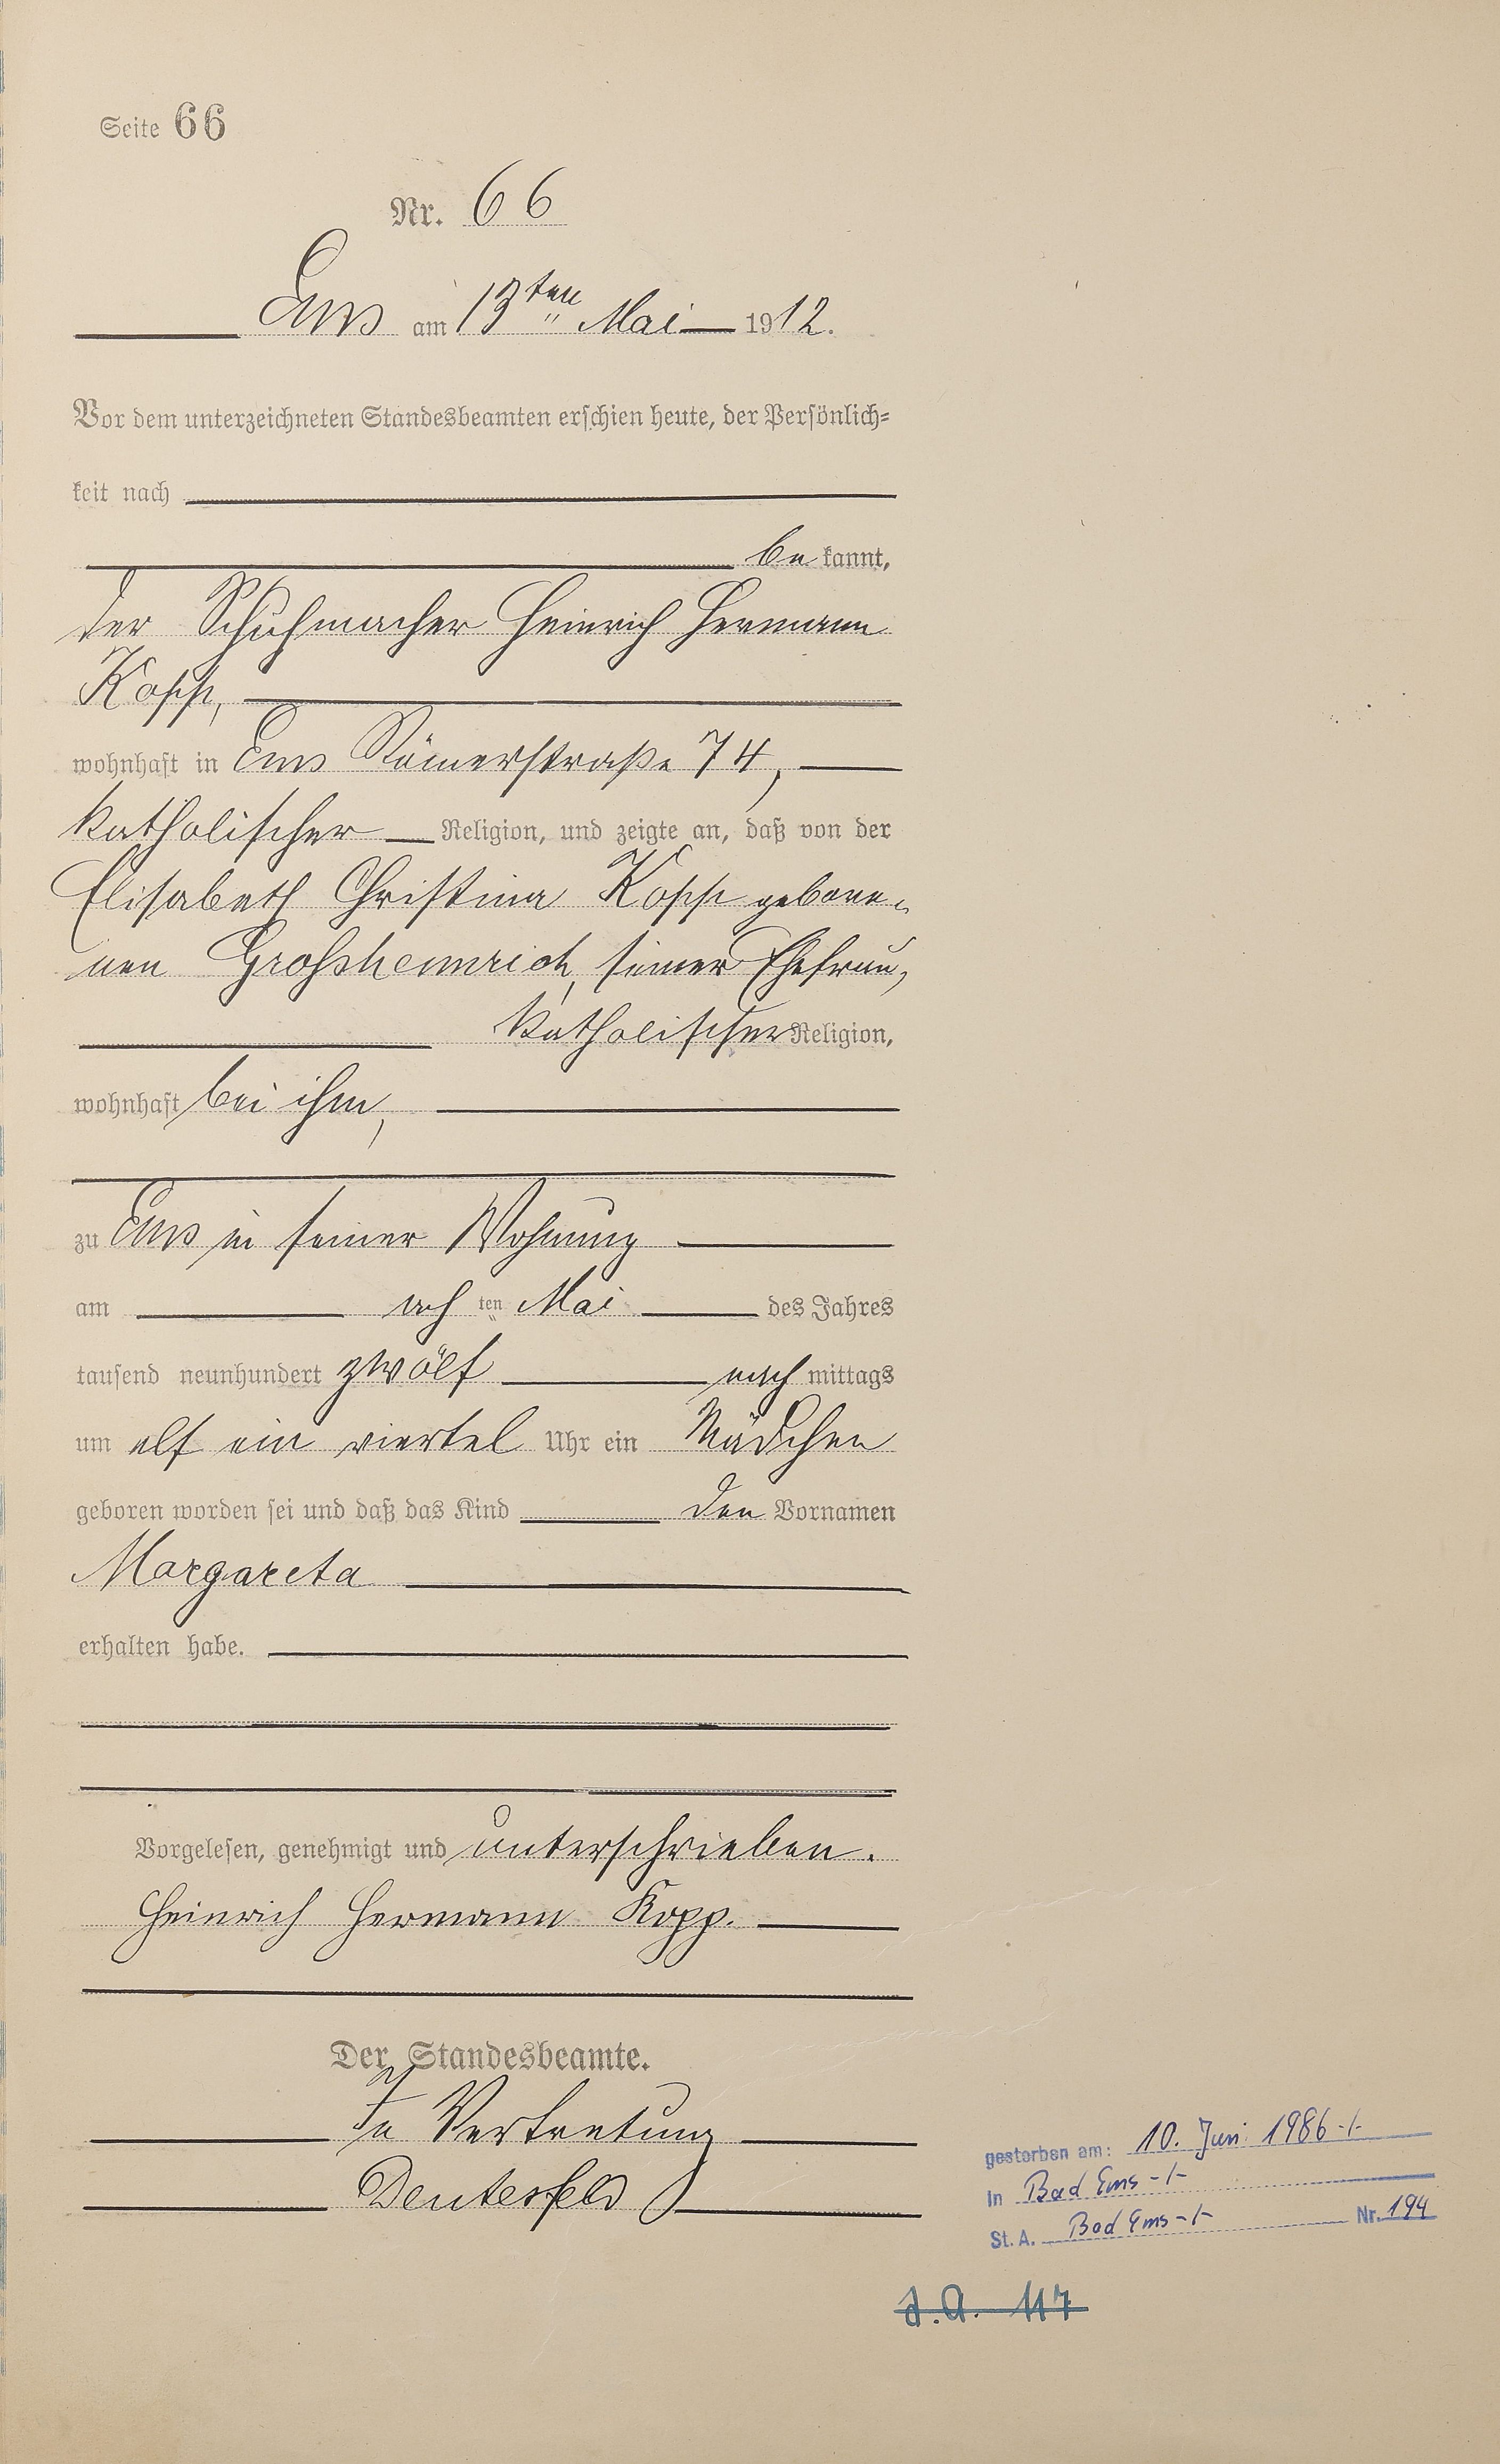 Seite 66
Nr. 66
Ems am 13ten Mai 1912.
Vor dem unterzeichneten Standesbeamten erschien heute, der Persönlich-
keit nach
bekannt,
der Schuhmacher Heinrich Hermann
Kopp,
wohnhaft in Ems Römerstraße 74,
katholischer Religion, und zeigte an, daß von der
Elisabeth Christina Kopp gebore-
nen Großsheinrich, seiner Ehefrau,
katholischer Religion,
wohnhaft bei ihm,
zu Ems in seiner Wohnung
am achten Mai des Jahres
tausend neunhundert zwölf nachmittags
um elf ein viertel Uhr ein Mädchen
geboren worden sei und daß das Kind den Vornamen
Margareta
erhalten habe.
Vorgelesen, genehmigt und unterschrieben.
Heinrich Hermann Kopp.
Der Standesbeamte.
In Vertretung
Deutesfeld
gestorben am: 10. Juni 1986 -/-
In Bad Ems -/-
St. A. Bad Ems -/- Nr. 194
J.A. 117